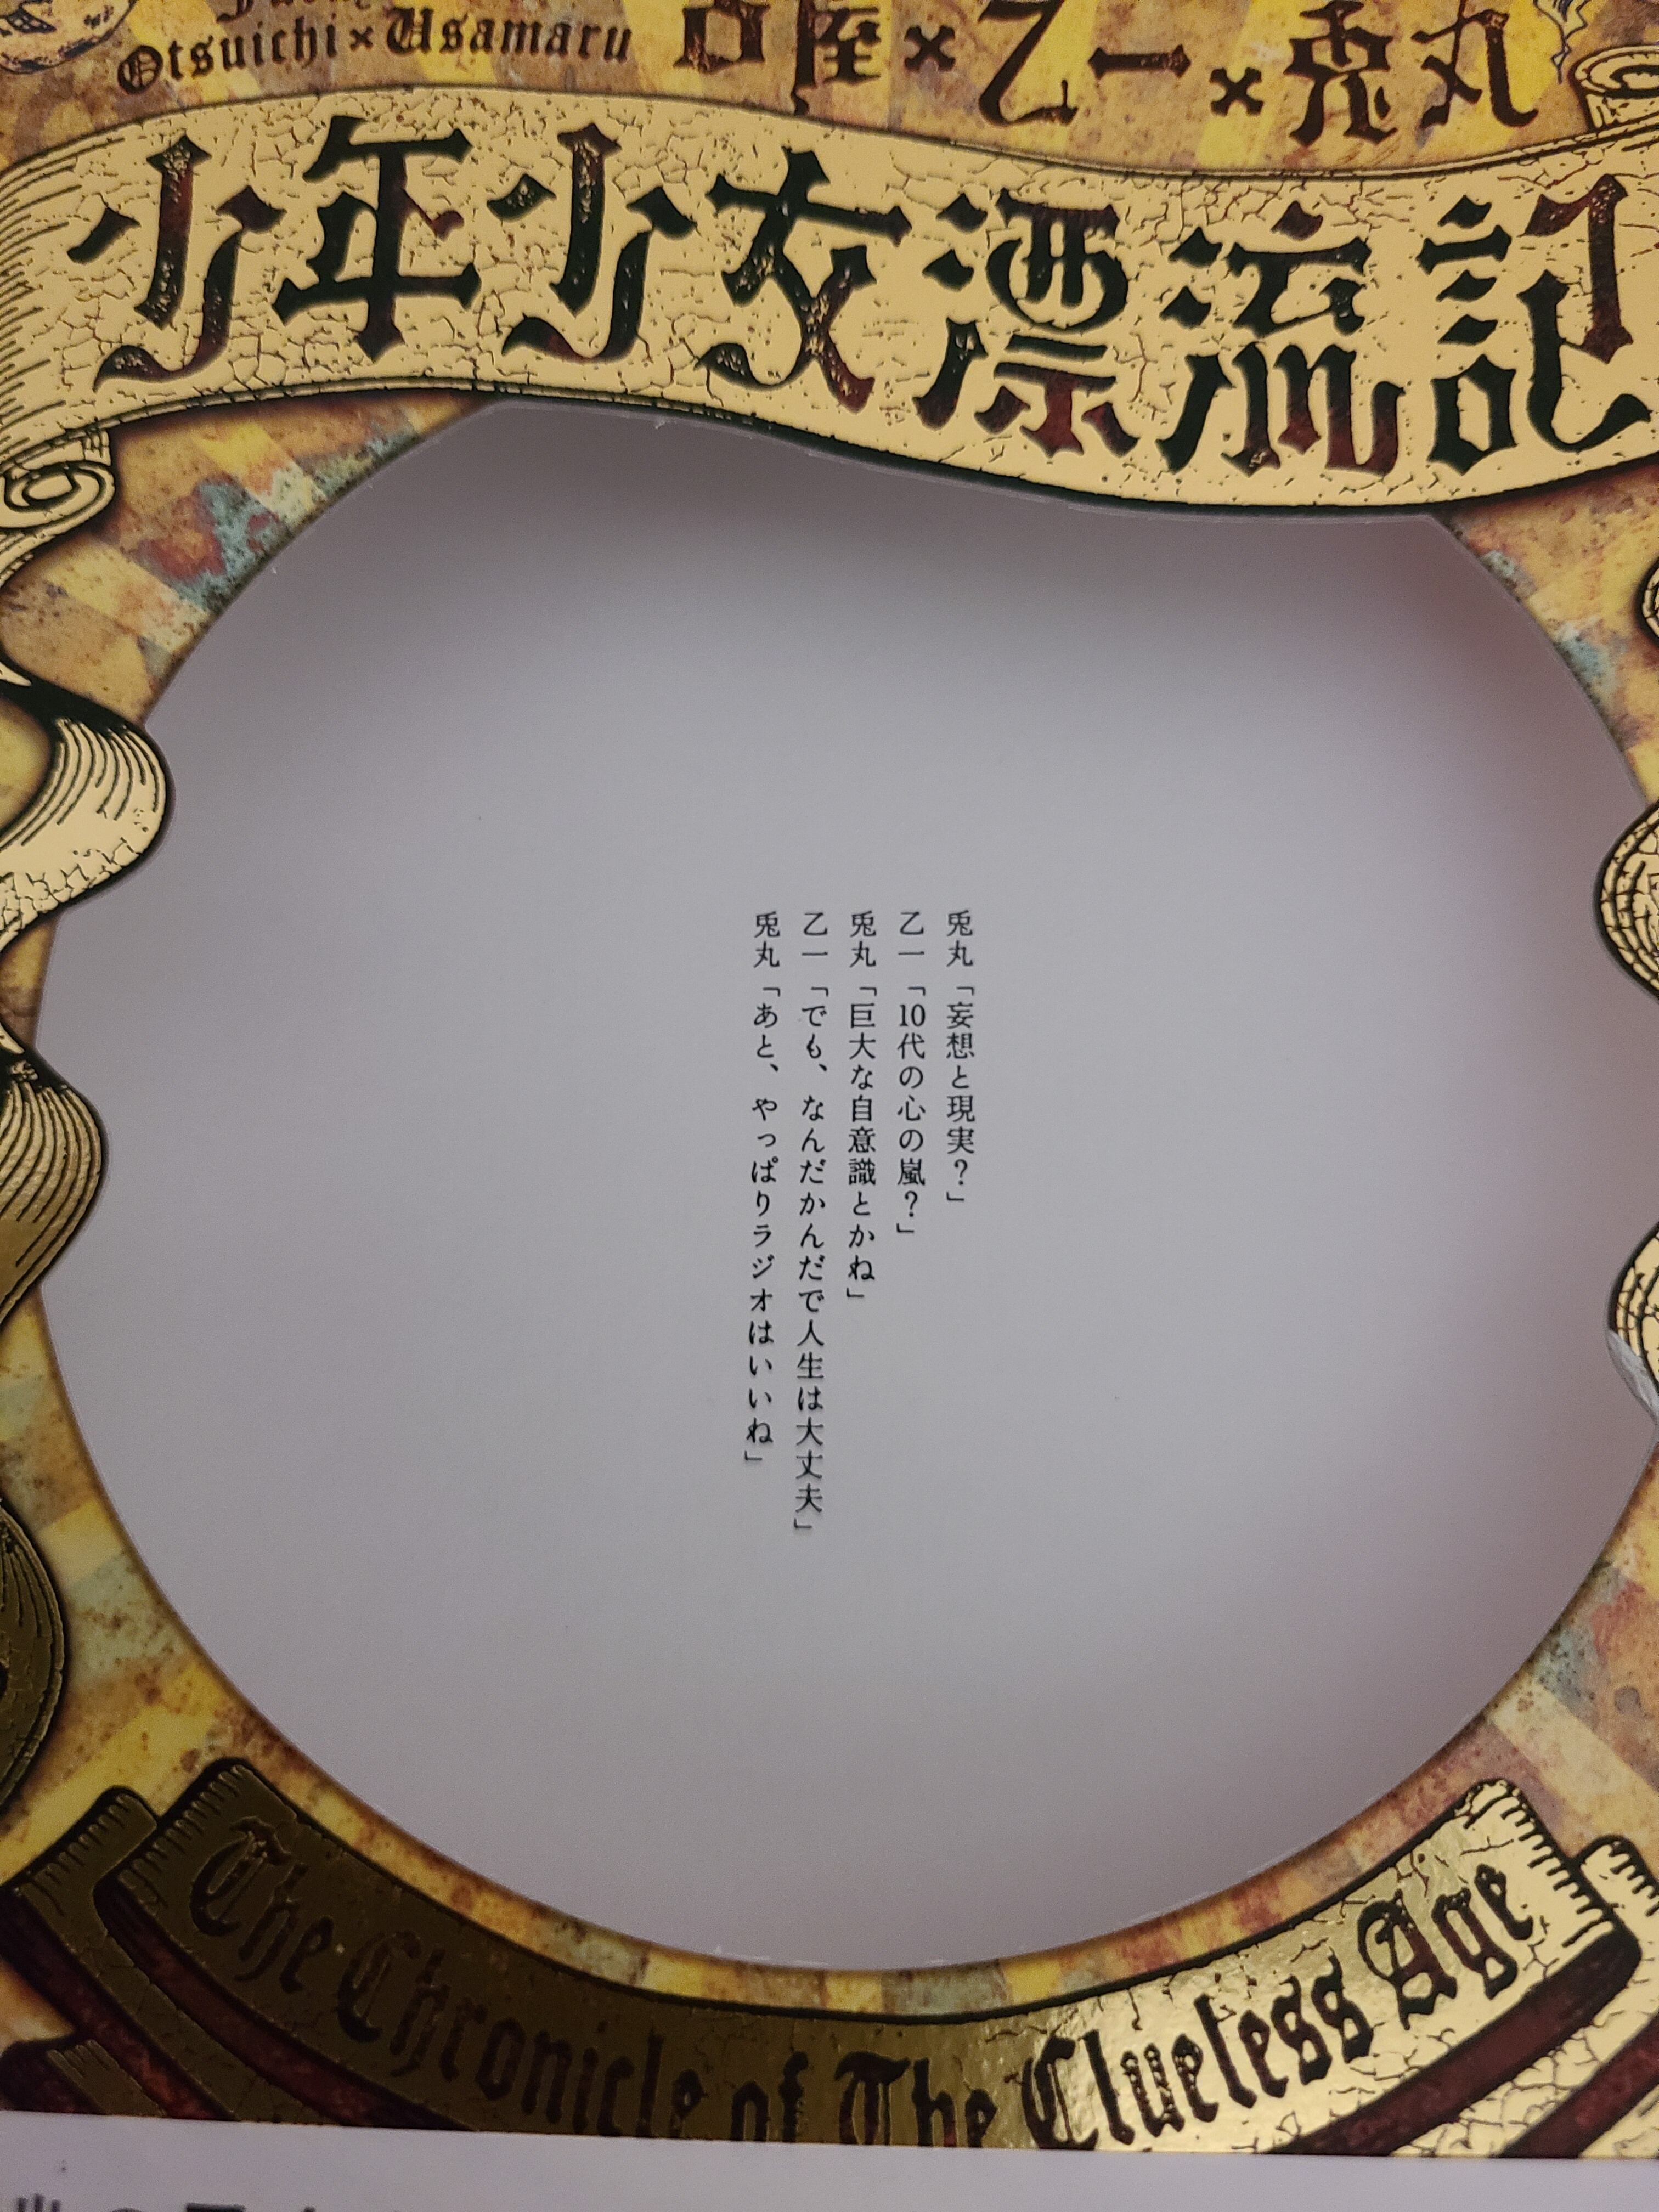 Otsuichi×Usamaru
屋×乙一×兎丸
少年少女漂流記
兎丸「妄想と現実?」
乙一「10代の心の嵐?」
兎丸「巨大な自意識とかね」
乙一「でも、なんだかんだで人生は大丈夫」
兎丸「あと、やっぱりラジオはいいね」
The Chronicle of The Clueless Age